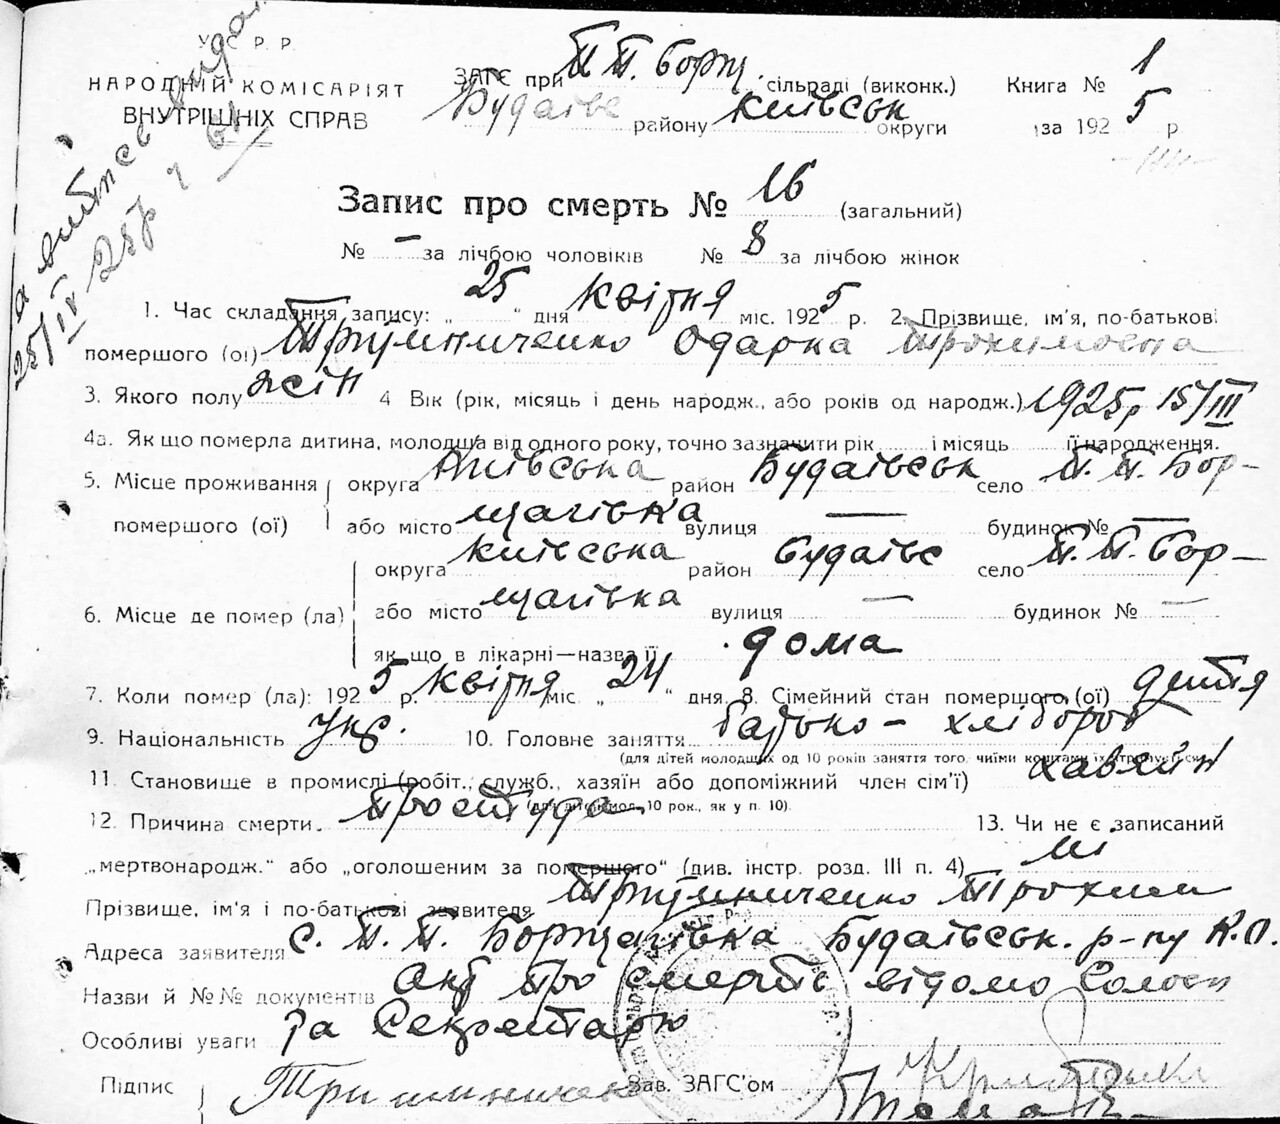 У С Р. Р.
НАРОДНІЙ КОМІСАРІЯТ
ВНУТРІШНІХ СПРАВ
ЗАГС при П П. Борщ. сільраді (виконк.)
Будаївс району Київськ округи
Книга № 1
за 1925 р
25/IV 25р
Запис про смерть № 16 (загальний)
№ – за лічбою чоловіків № 8 за лічбою жінок
1. Час складання запису: „ 25 “ дня Квітня міс. 1925 р. 2. Прізвище, ім’я, по-батькові
помершого (ої) Одарка Трохимовна
3. Якого полу жін 4 Вік (рік, місяць і день народж., або років од народж.) 1925р 15/III
4а. Як що померла дитина, молодша від одного року, точно зазначити рік і місяць її народження.
5. Місце проживання округа Київська район Будаївськ село П. П. Бор-
помершого (ої) або місто щагівка вулиця — будинок № —
округа Київська район Будаївс село П. П. Бор-
6. Місце де помер (ла) або місто щагівка вулиця — будинок № —
як що в лікарні—назва її дома
7. Коли помер (ла): 1925 р. Квітня міс. „ 24 “ дня. 8. Сімейний стан помершого (ої) дитя
9. Національність Укр. 10. Головне заняття батько – хлібороб
(для дітей молодших од 10 років заняття того, чиїми коштами їх утримується)
11. Становище в промислі (робіт., служб., хазяїн або допоміжний член сім’ї) хазяїн
(для дит. мол. 10 рок., як у п. 10).
12. Причина смерти. Простуда 13. Чи не є записаний
„мертвонародж.“ або „оголошеним за помершого“ (див. інстр. розд. III п. 4) ні
Прізвище, ім’я і по-батькові заявителя Трохим
Адреса заявителя с. П. П. Борщагівка Будаївськ. р-ну К.О.
Назви й №№ документів Акт про смерть відомо Голові
Особливі уваги та Секретарю
Підпис Зав. ЗАГС’ом